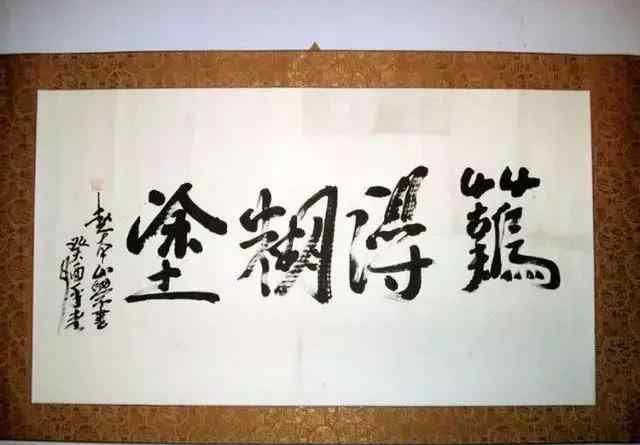 難得糊塗
山學書
癸酉年